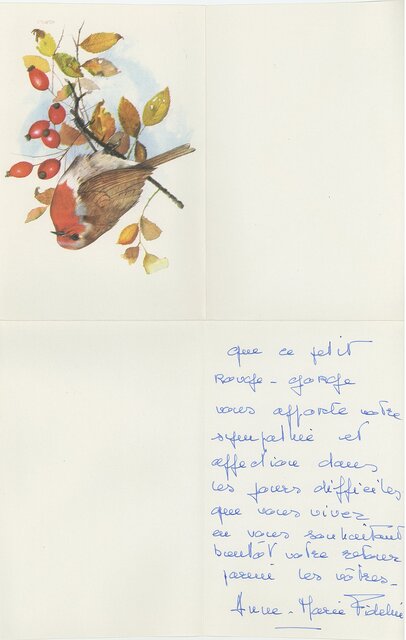 que ce petit
rouge-gorge
vous apporte notre
sympathie et
affection dans
les jours difficiles
que vous vivez
en vous souhaitant
bientôt votre retour
parmi les vôtres.
Anne-Marie